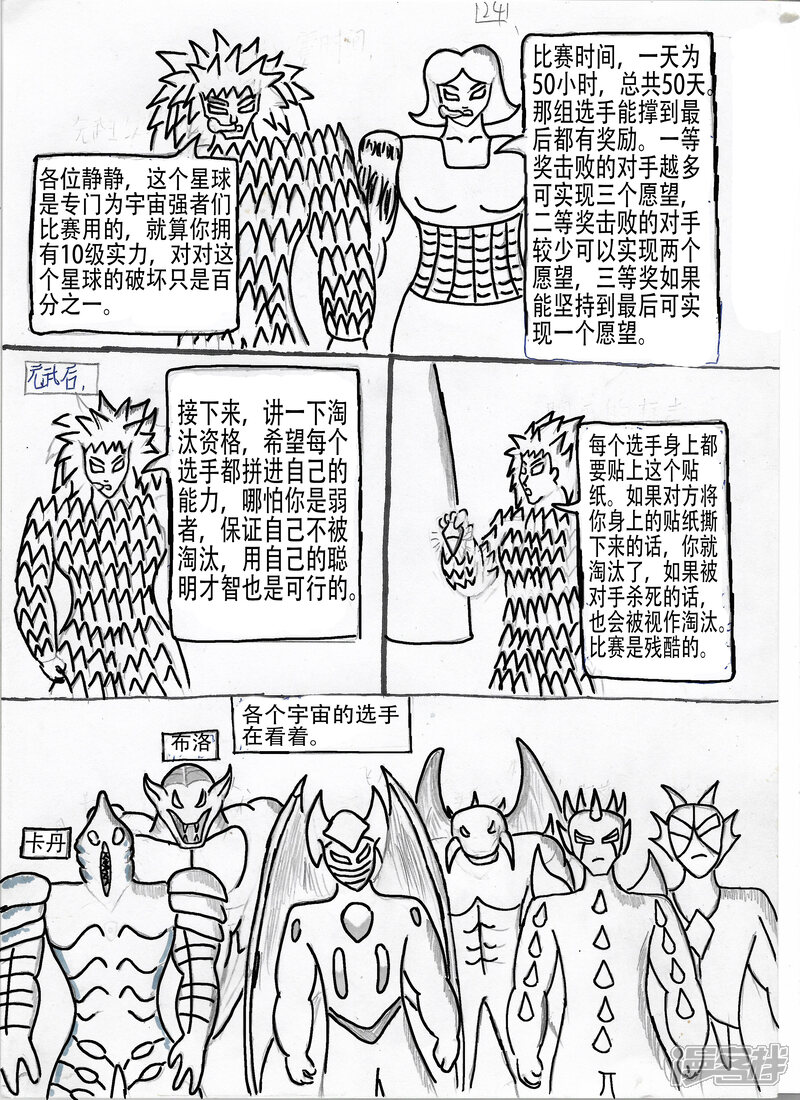 124
各位静静，这个星球
是专门为宇宙强者们
比赛用的，就算你拥
有10级实力，对对这
个星球的破坏只是百
分之一。
比赛时间，一天为
50小时，总共50天。
那组选手能撑到最
后都有奖励。一等
奖击败的对手越多
可实现三个愿望，
二等奖击败的对手
较少可以实现两个
愿望，三等奖如果
能坚持到最后可实
现一个愿望。
接下来，讲一下淘
汰资格，希望每个
选手都拼进自己的
能力，哪怕你是弱
者，保证自己不被
淘汰，用自己的聪
明才智也是可行的。
每个选手身上都
要贴上这个贴
纸。如果对方将
你身上的贴纸撕
下来的话，你就
淘汰了，如果被
对手杀死的话，
也会被视作淘汰。
比赛是残酷的。
各个宇宙的选手
在看着。
布洛
卡丹
漫客栈